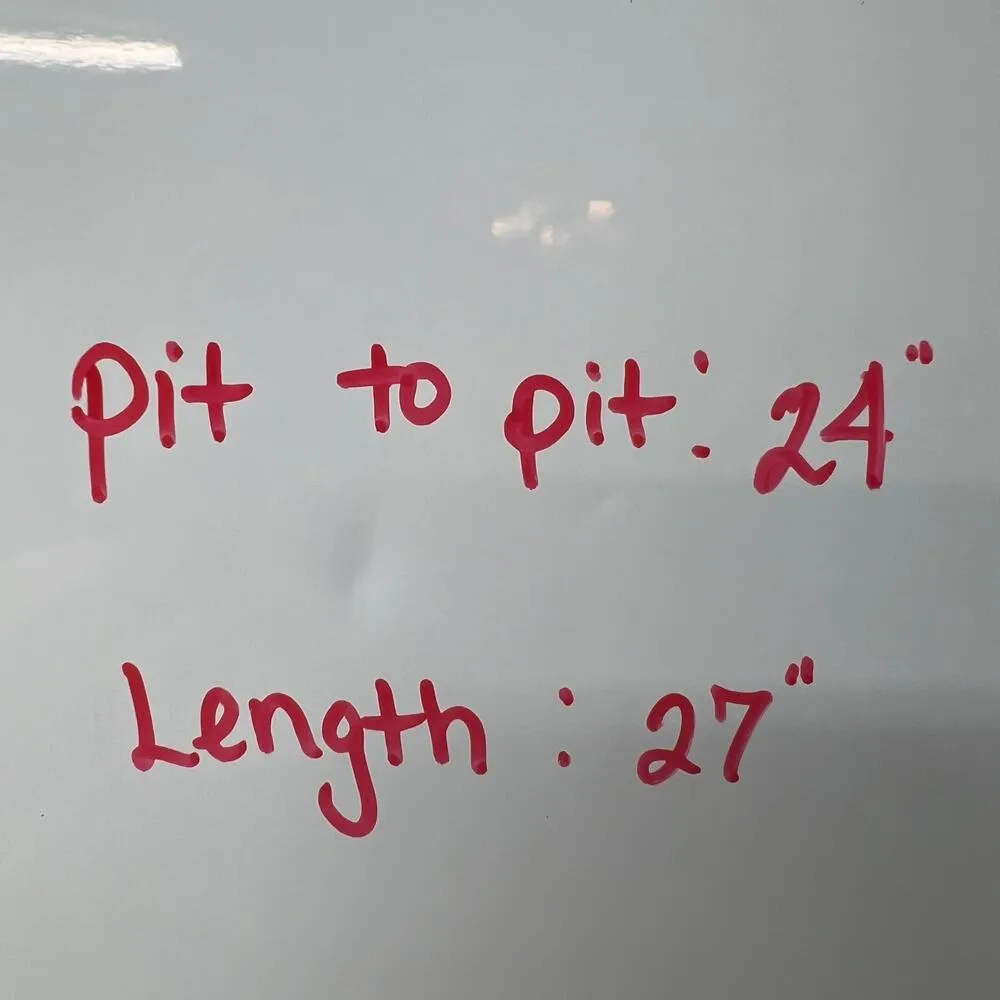 pit to pit: 24"
Length: 27"